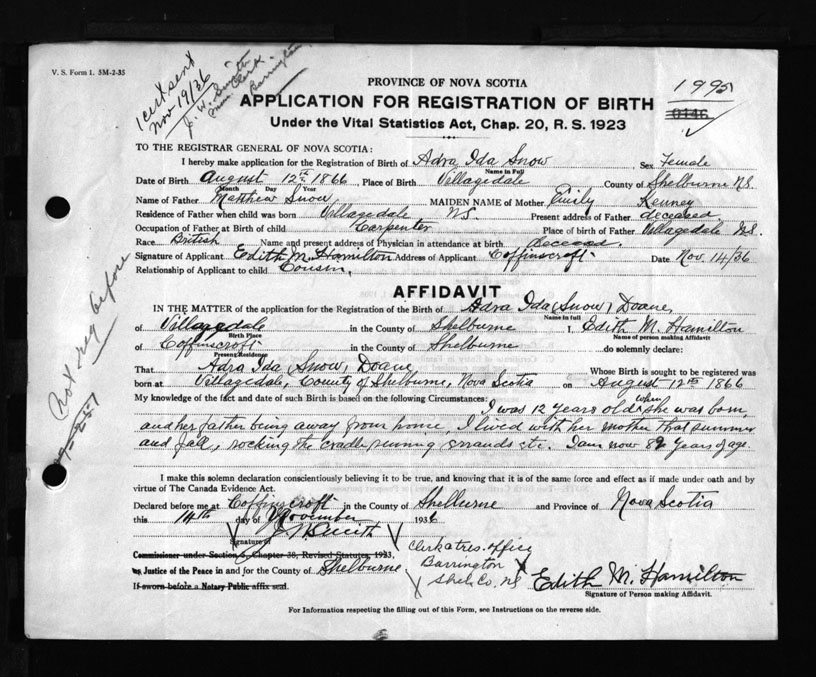 V. S. Form 1. 5M-2-35
1 cert sent
Nov 19/36
J. W. Smith
Mun Clerk
Barrington
1995
0146
PROVINCE OF NOVA SCOTIA
APPLICATION FOR REGISTRATION OF BIRTH
Under the Vital Statistics Act, Chap. 20, R. S. 1923
TO THE REGISTRAR GENERAL OF NOVA SCOTIA:
I hereby make application for the Registration of Birth of Adra Ida Snow Sex Female
Name in Full
Date of Birth August 12th 1866, Place of Birth Villagedale County of Shelburne NS.
Month Day Year
Name of Father Matthew Snow MAIDEN NAME of Mother Emily Kenney
Residence of Father when child was born Villagedale NS. Present address of Father deceased.
Occupation of Father at Birth of child Carpenter Place of birth of Father Villagedale NS.
Race British Name and present address of Physician in attendance at birth deceased.
Signature of Applicant Edith M. Hamilton Address of Applicant Coffinscroft. Date Nov. 14/36
Relationship of Applicant to child Cousin.
AFFIDAVIT
IN THE MATTER of the application for the Registration of the Birth of Adra Ida (Snow) Doane,
Name in full
of Villagedale in the County of Shelburne I, Edith M. Hamilton
Birth Place Name of person making Affidavit
of Coffinscroft in the County of Shelburne do solemnly declare:
Present Residence
That Adra Ida (Snow) Doane Whose Birth is sought to be registered was
born at Villagedale, County of Shelburne, Nova Scotia on August 12th 1866
My knowledge of the fact and date of such Birth is based on the following Circumstances:
I was 12 years old when she was born,
and her father being away from home, I lived with her mother that summer
and fall, rocking the cradle, running errands etc. I am now 82 years of age.
I make this solemn declaration conscientiously believing it to be true, and knowing that it is of the same force and effect as if made under oath and by
virtue of The Canada Evidence Act.
Declared before me at Coffinscroft in the County of Shelburne and Province of Nova Scotia
this 14th day of November 1936
J W Smith
Signature of
Commissioner under Section 5, Chapter 38, Revised Statutes, 1923,
Justice of the Peace in and for the County of Shelburne
If sworn before a Notary Public affix seal.
Clerk & Tres. office
Barrington
Shel. Co. NS
Edith M. Hamilton
Signature of Person making Affidavit.
For Information respecting the filling out of this Form, see Instructions on the reverse side.
Not reg before